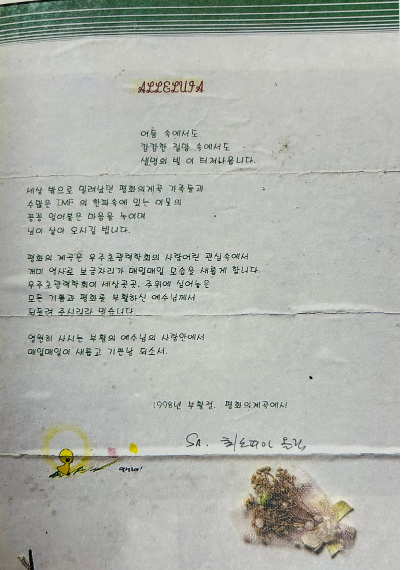 ALLELUIA
어둠 속에서도
캄캄한 절망 속에서도
생명의 빛이 터져나옵니다.
세상 밖으로 밀려났던 평화의계곡 가족들과
수많은 IMF 의 한파속에 있는 이웃의
꽁꽁 얼어붙은 마음을 녹이며
님이 살아 오시길 빕니다.
평화의 계곡은 우주초광력학회의 사랑어린 관심속에서
개미 역사로 보금자리가 매일매일 모습을 새롭게 합니다.
우주초광력학회이 세상곳곳, 주위에 심어놓은
모든 기쁨과 평화를 부활하신 예수님께서
되돌려 주시리라 믿습니다.
영원히 사시는 부활의 예수님의 사랑안에서
매일매일이 새롭고 기쁜날 되소서.
1998년 부활절. 평화의계곡에서
Sr.